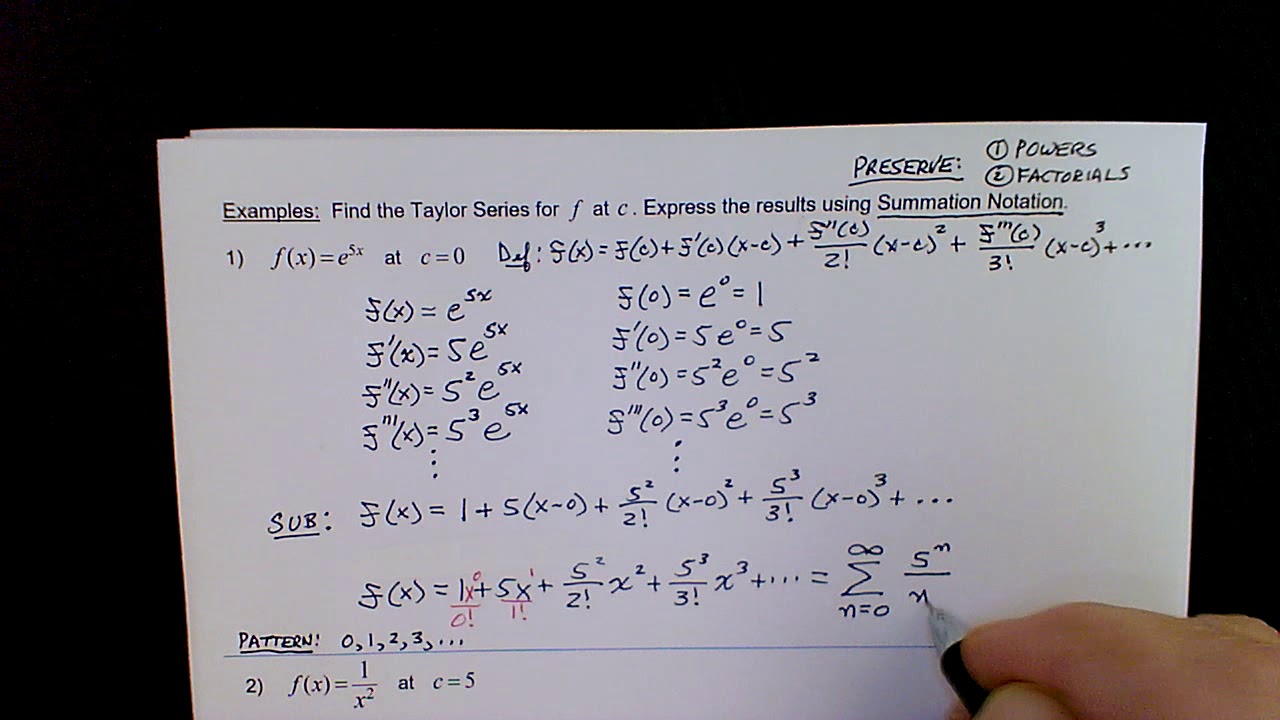 PRESERVE: ① POWERS
② FACTORIALS
Examples: Find the Taylor Series for f at c. Express the results using Summation Notation.
1) f(x)=e^{5x} at c=0 Def: f(x)=f(c)+f'(c)(x-c)+\frac{f''(c)}{2!}(x-c)^2+\frac{f'''(c)}{3!}(x-c)^3+⋯
f(x)=e^{5x} f(0)=e^0=1
f'(x)=5e^{5x} f'(0)=5e^0=5
f''(x)=5^2e^{5x} f''(0)=5^2e^0=5^2
f'''(x)=5^3e^{5x} f'''(0)=5^3e^0=5^3
⋮ ⋮
SUB: f(x)=1+5(x-0)+\frac{5^2}{2!}(x-0)^2+\frac{5^3}{3!}(x-0)^3+⋯
f(x)=\frac{1x^0}{0!}+\frac{5x^1}{1!}+\frac{5^2}{2!}x^2+\frac{5^3}{3!}x^3+⋯=\sum_{n=0}^{∞}\frac{5^n}{n}
PATTERN: 0,1,2,3,...
2) f(x)=\frac{1}{x^2} at c=5